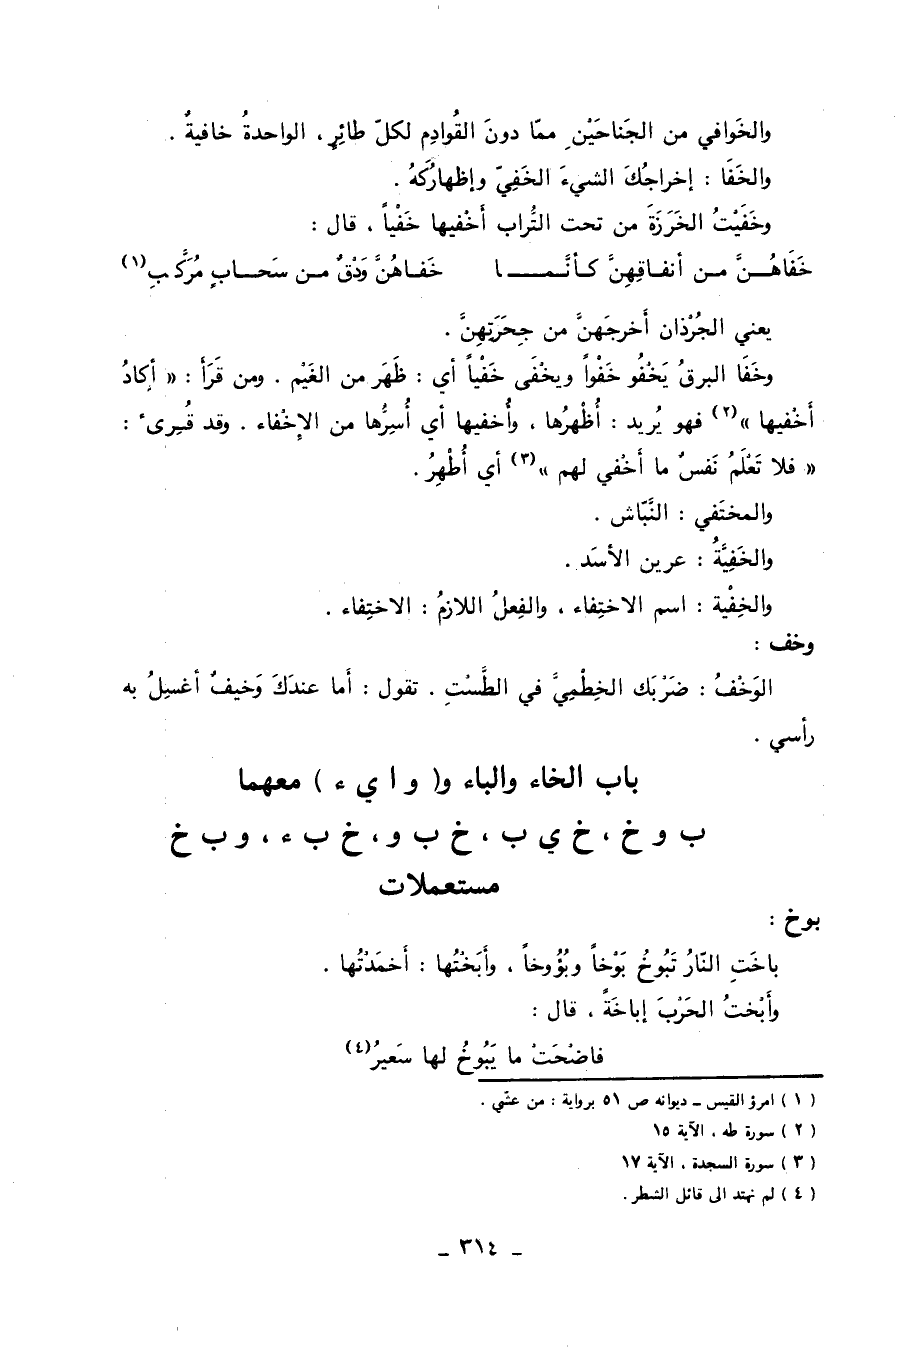 والخَوافي من الجَناحَيْنِ ممّا دونَ القُوادِم لكلّ طائِرٍ ، الواحدةُ خافيةٌ .
والخَفَا : إخراجُكَ الشيءَ الخَفِيّ وإظهارُكَهُ .
وخَفَيْتُ الخَرَزَةَ من تحت التُّراب أَخْفيها خَفْياً ، قال :
خَفَاهُـــنَّ مـن أنفـاقِهِنَّ كـأنَّـمـــــا خَفـاهُنَّ وَدْقٌ مـن سَحـــابٍ مُرَكَّبِ(١)
يعني الجُرْذان أَخرجَهنَّ من جِحَرَتِهِنَّ .
وخَفَا البرقُ يَخْفُو خَفْواً ويخْفَى خَفْياً أي : ظَهَر من الغَيْم . ومن قَرَأَ : « أكادُ
أَخْفيها »(٢) فهو يُريد : أُظْهرُها ، وأُخفيها أي أُسِرُّها من الإخْفاء . وقد قُـرِىء :
« فلا تَعْلَمُ نَفسٌ ما أَخْفي لهم »(٣) أي أُظْهِرُ .
والمختَفي : النَّبّاش .
والخَفِيَّةُ : عرين الأسَد .
والخِفْية : اسم الاختِفاء ، والفِعلُ اللازمُ : الاختِفاء .
وخف :
الوَخْفُ : ضَرْبَك الخِطْمِيَّ في الطَّسْتِ . تقول : أَما عندَكَ وَخيفٌ أغسِلُ به
رأسي .
باب الخاء والباء و( و ا ي ء ) معهما
ب و خ ، خ ي ب ، خ ب و ، خ ب ء ، و ب خ
مستعملات
بوخ :
باخَتِ النّارُ تَبُوخُ بَوْخاً وبُؤُوخاً ، وأَبَخْتُها : أخمَدْتُها .
وأَبْختُ الحَرْبَ إباخَةً ، قال :
فاضْحَتْ ما يَبُوخُ لها سَعيرُ(٤)
( ١ ) امرؤ القيس ـ ديوانه ص ٥١ برواية : من عشّي .
( ٢ ) سورة طه ، الآية ١٥
( ٣ ) سورة السجدة ، الآية ١٧
( ٤ ) لم نهتد الى قائل الشطر .
ـ ٣١٤ ـ